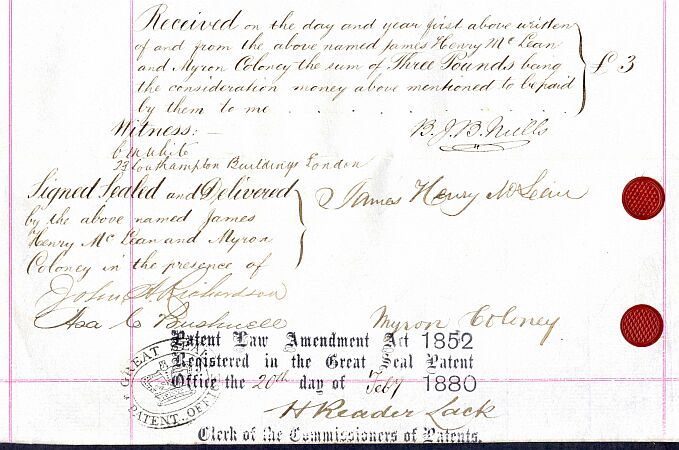 Received on the day and year first above written
of and from the above named James Henry Mc Lean
and Myron Coloney the sum of Three Pounds being
the consideration money above mentioned to be paid
by them to me . . . . . .
£ 3
B. J. B. Mills
Witness: —
C M White
23 Southampton Buildings London
Signed Sealed and Delivered
by the above named James
Henry Mc Lean and Myron
Coloney in the presence of
James Henry McLean
John A. Richardson
Asa C Bushnell
Myron Coloney.
Patent Law Amendment Act 1852
Registered in the Great Seal Patent
Office the 20th day of Feby 1880
GREAT SEAL
PATENT OFFICE
H Reader Lack
Clerk of the Commissioners of Patents.